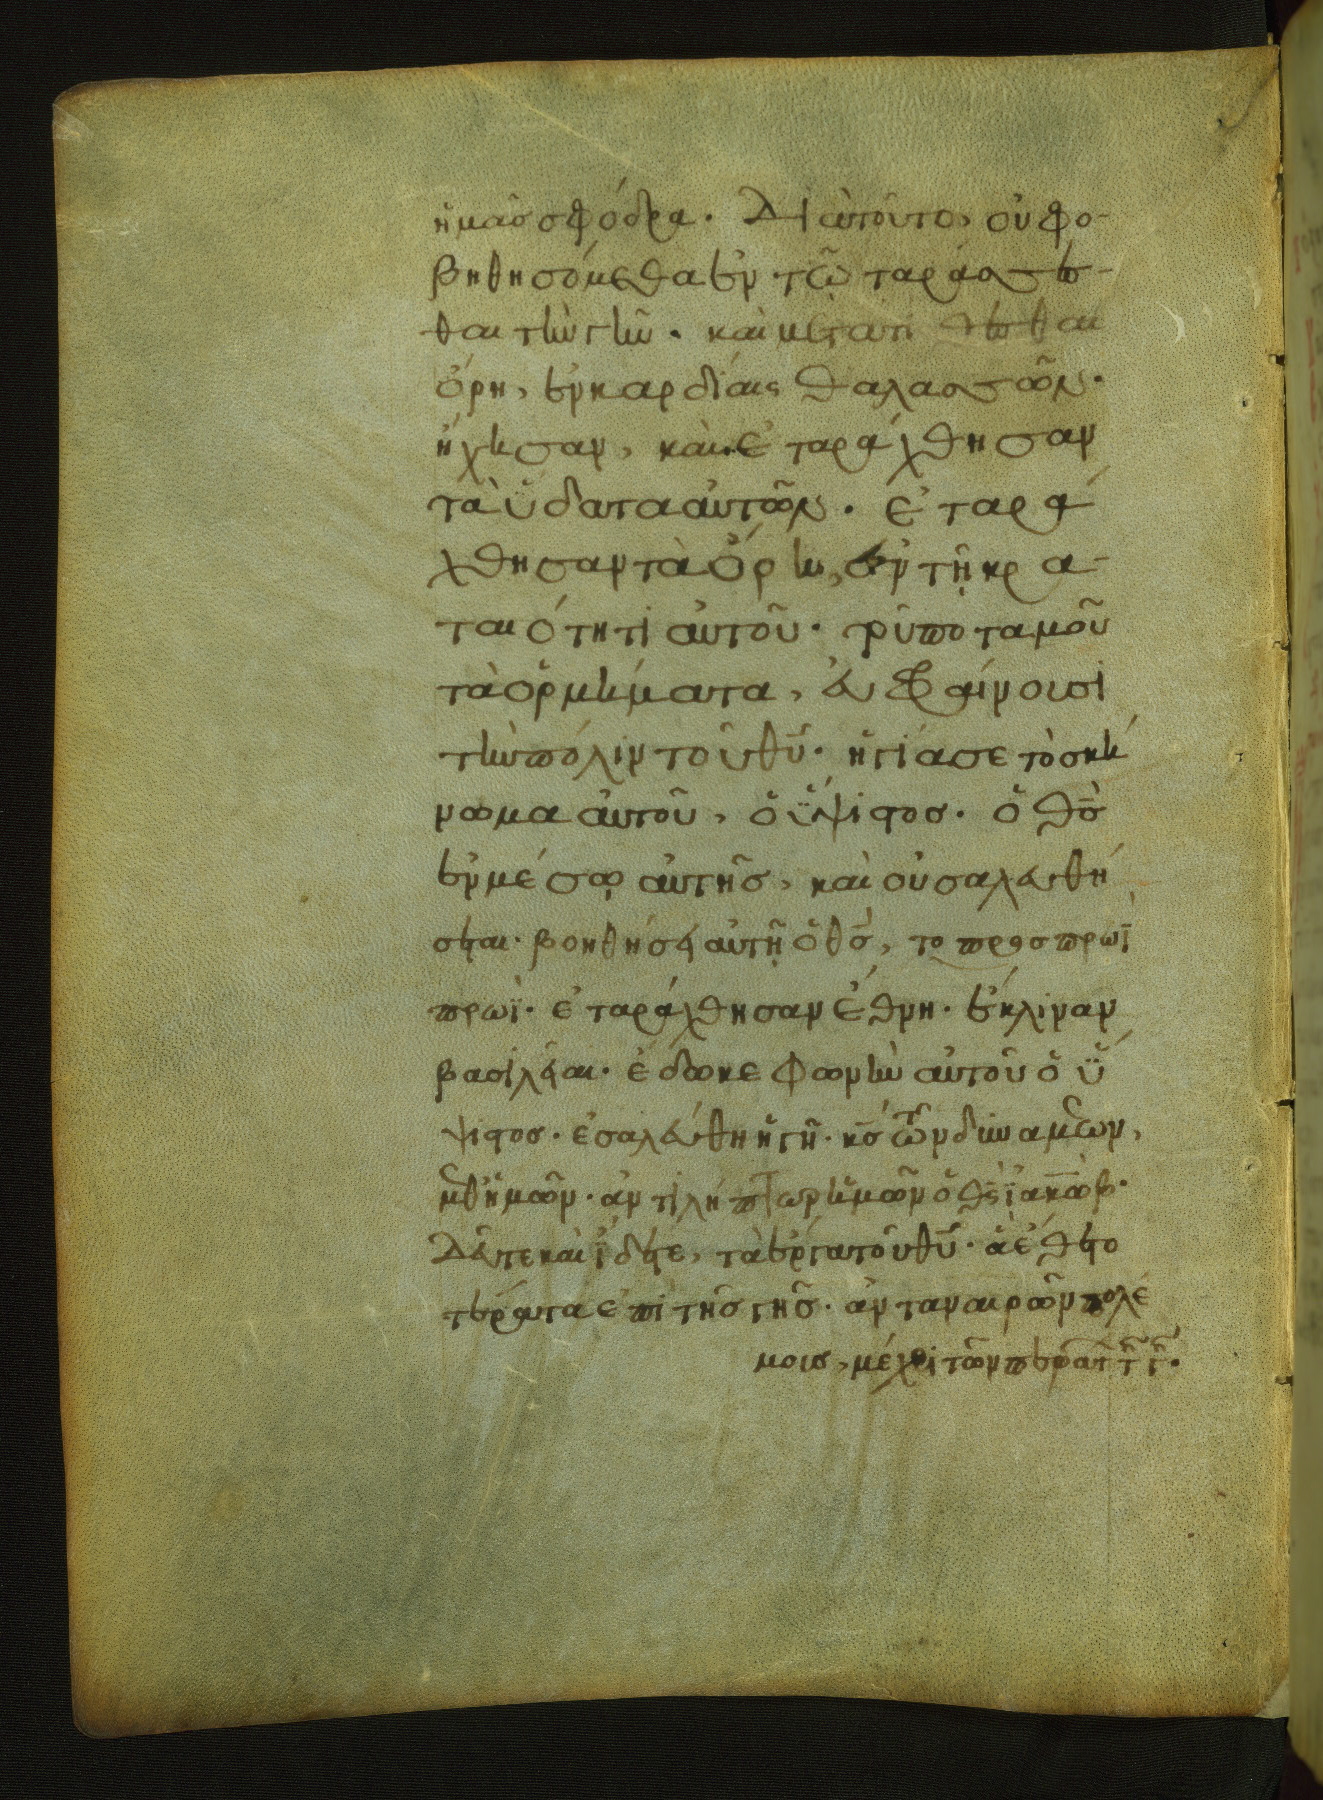 ἡμᾶς σφόδρα. Διὰ τοῦτο, οὐ φο-
βηθησόμεθα ἐν τῶ ταράσσεσ-
θαι τὴν γῆν. καὶ μετατίθεσθαι
ὄρη, ἐν καρδίαις θαλασσῶν.
ἤχησαν, καὶ ἐταράχθησαν
τὰ ὕδατα αὐτῶν. ἐταρά
χθησαν τὰ ὄρη, ἐν τῇ κρα-
ταιότητι αὐτοῦ. τοῦ ποταμοῦ
τὰ ὁρμήματα, εὐφραίνουσι
τὴν πόλιν τοῦ θυ. ἡγίασε τὸ σκή
νωμα αὐτοῦ, ὁ ὕψιστος. ὁ θς
ἐν μέσῳ αὐτῆς, καὶ οὐ σαλευθή
σεται. βοηθήσει αὐτῇ ὁ θς, το προς πρωῒ
πρωΐ. ἐταράχθησαν ἔθνη. ἔκλιναν
βασιλεῖαι. ἔδωκε φωνὴν αὐτοῦ ὁ ὕ
ψιστος. ἐσαλεύθη ἡ γῆ. κς τῶν δυνάμεων,
μεθ ἡμῶν. ἀντιλήπτωρ ἡμῶν ὁ θς ἰακώβ.
Δεῦτε καὶ ἴδετε, τὰ ἔργα τοῦ θυ. ἃ ἔθετο
τέρατα ἐπὶ τῆς γῆς. ἀνταναιρῶν πολέ
μους, μέχρι τῶν περάτ τ γ.